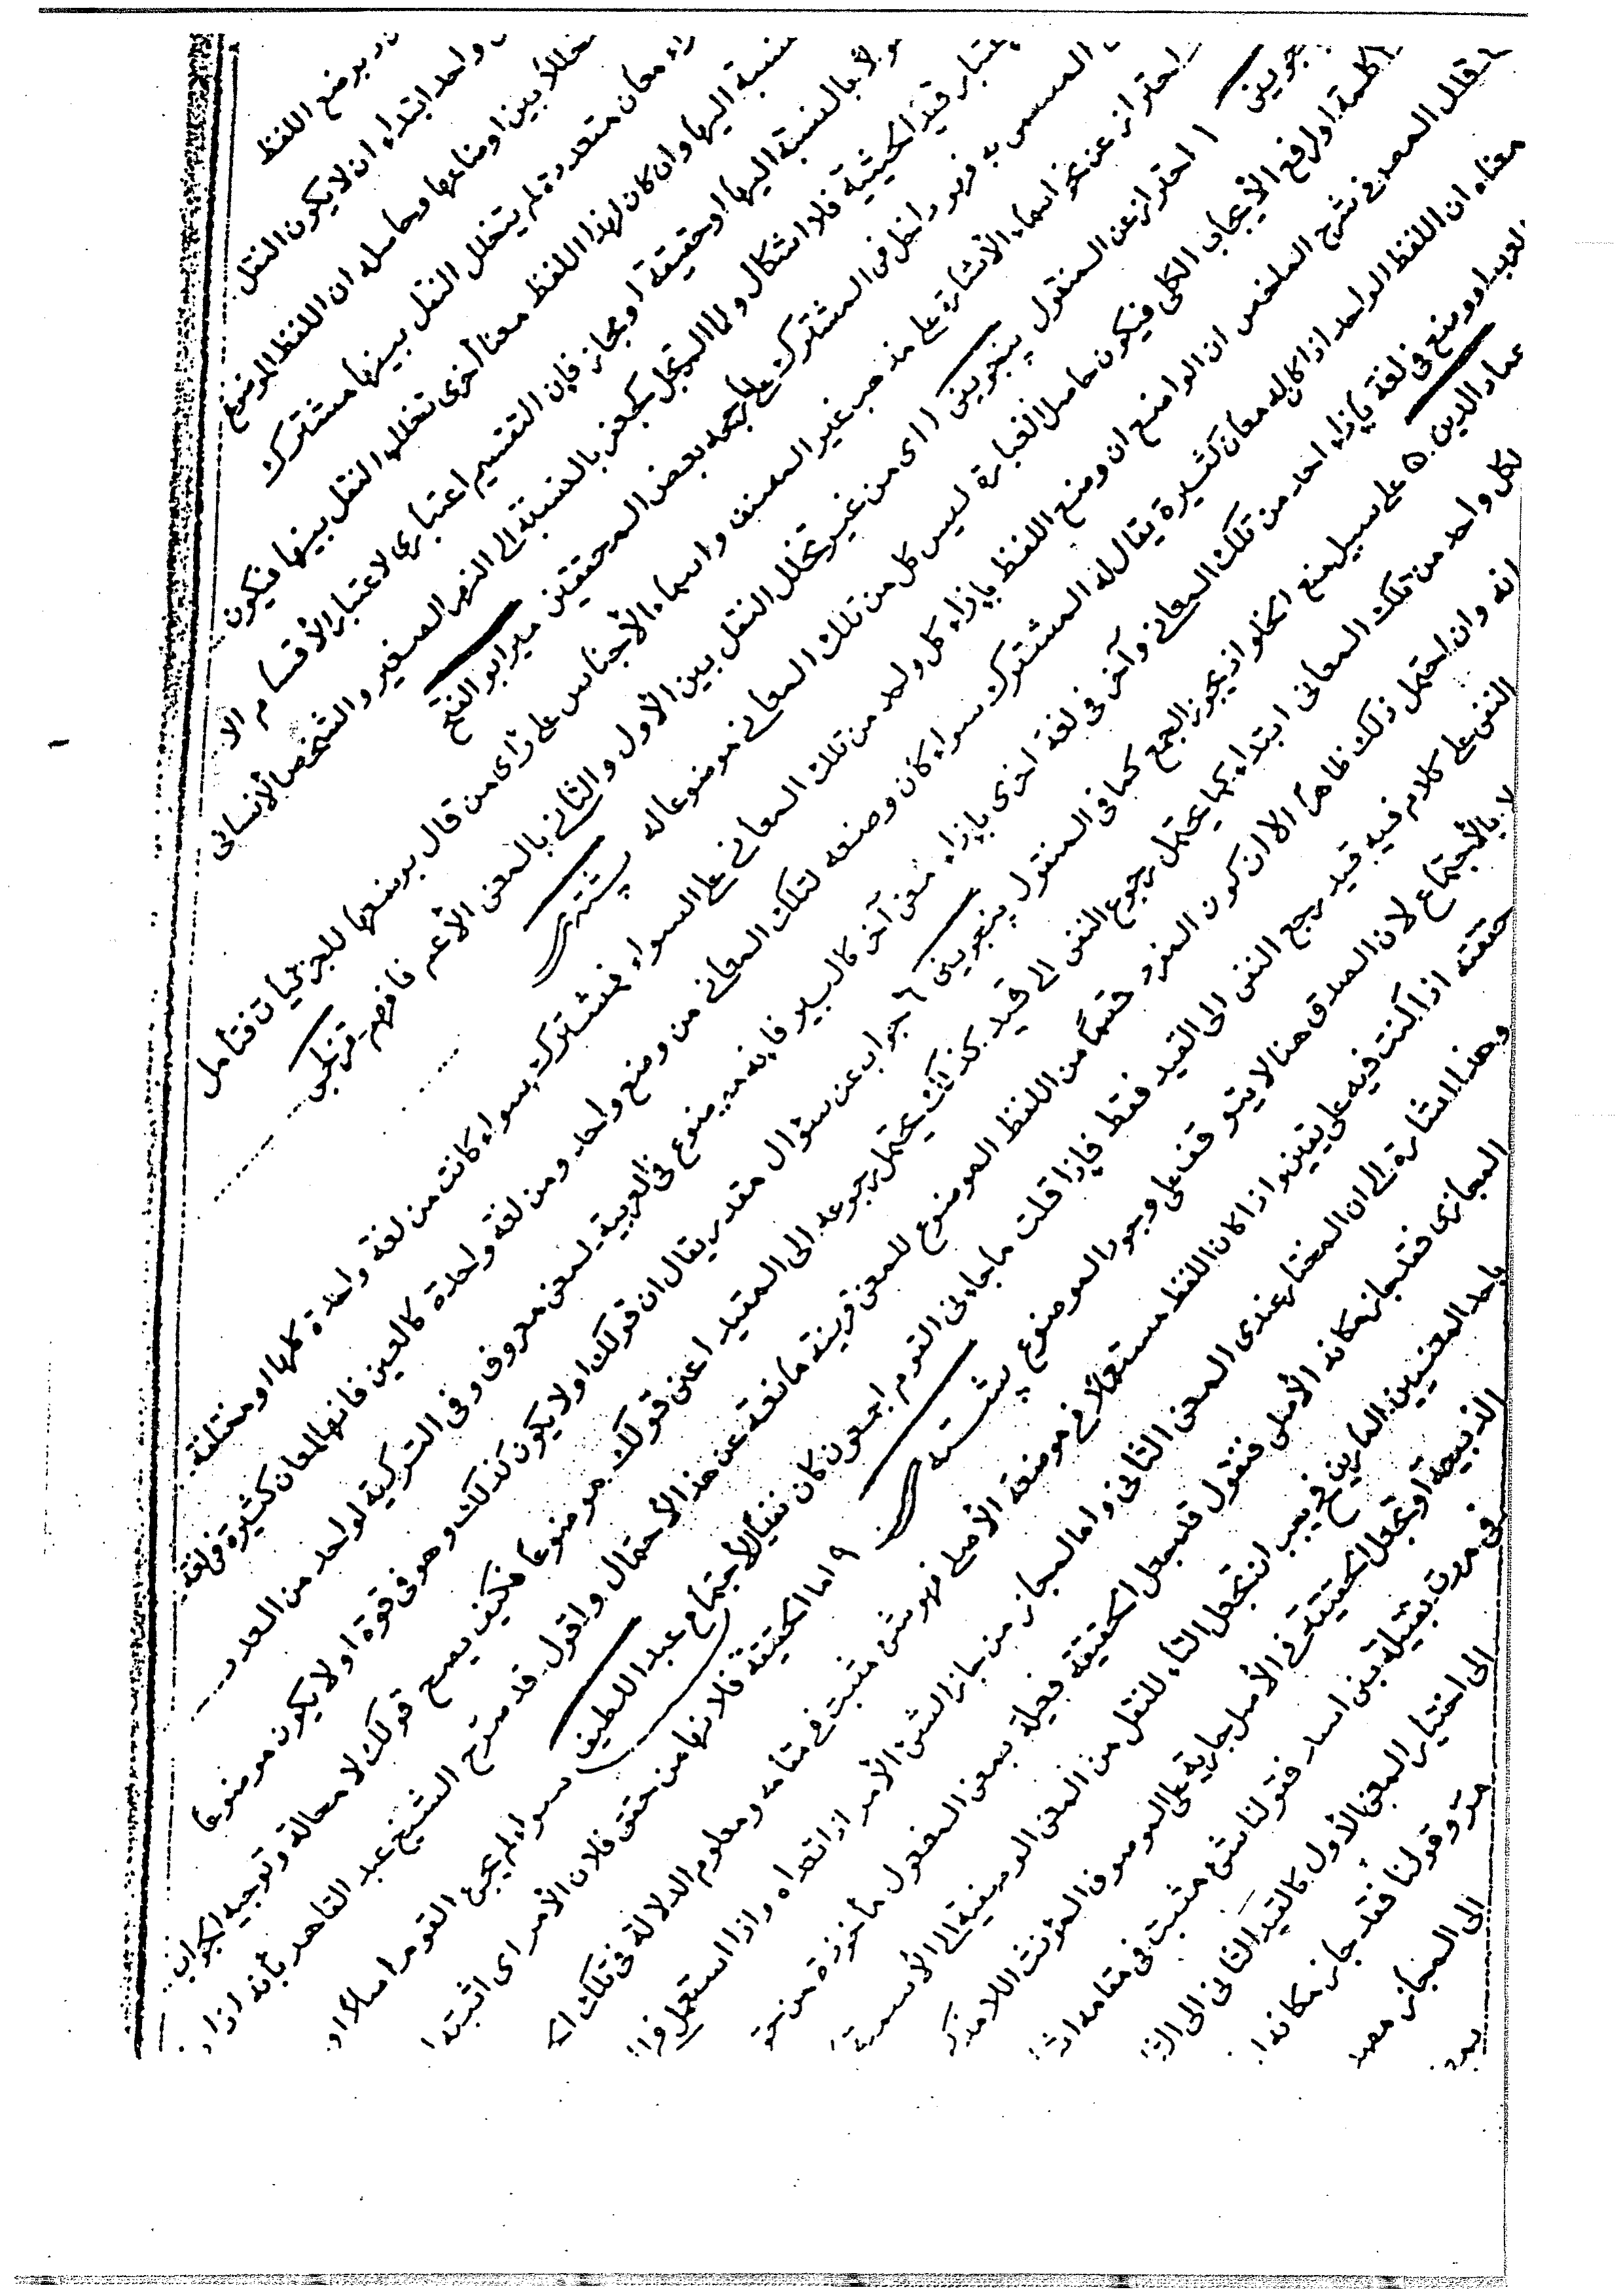 بوضع اللفظ
واحد ابتداء ان لا يكون النقل
تخللا بين اوضاعها وحاصله ان اللفظ الموضوع
زاء معان متعددة لم يتخلل النقل بينها مشترك
نسبة اليها وان كان لهذا اللفظ معنا أخرى تخلله النقل بينها فيكون
ولا بالنسبة اليها او حقيقة او مجاز فإن التقسيم اعتبارى لاعتبار الأقسام الا
عتبار قيد الحيثية فلا اشكال ولما المرتجل كجعفر بالنسبة الى النهر الصغير والشخص الأنسانى
المسمى به فهو داخل فى المشترك على ما رجحه بعض المحققين مير ابو الفتح
احتراز عن نحو اسماء الأشارة على مذهب غير المصنف واسماء الأجناس على رأى من قال بوضعها للجزئيات فتأمل
جوينى ١ احتراز عن المنقول پنجوينى ( اى من غير تخلل النقل بين الأول والثانى بالمعنى الأعم فافهم قزلجى
كلمة او لرفع الأيجاب الكلى فيكون حاصل العبارة ليس كل من تلك المعانى موضوعا له پشدرى
قال المص فى شرح الملخص ان الواضع ان وضع اللفظ بإزاء كل واحد من تلك المعانى على السواء فمشترك سواء كانت من لغة واحدة كلها او مختلفة
معناه ان اللفظ الواحد اذا كان له معان كثيرة يقال له المشترك سواء كان وضعه لتلك المعانى من وضع واحد ومن لغة واحدة كالعين فانها لمعان كثيرة فى لغة
العرب او وضع فى لغة بإزاء احد من تلك المعانى وآخر فى لغة اخرى بإزاء معنى آخر كالبير فإنه موضوع فى العربية لمعنى معروف وفى التركية لواحد من العدد
عماد الدين ٥ على سبيل منع الخلو اذ يجوز الجمع كما فى المنقول پنجوينى ٦ جواب عن سؤال مقدر يقال ان قولك او لا يكون كذلك وهو فى قوة او لا يكون موضوعا
لكل واحد من تلك المعانى ابتداء كما يحتمل رجوع النفى الى قيد كذلك يحتمل رجوعه الى المقيد اعنى قولك موضوعا فكيف يصح قولك لا محالة وتوجيه الجواب
انه وان احتمل ذلك ظاهرا الا ان كون المفرد قسما من اللفظ الموضوع للمعنى قرينة مانعة عن هذا الأحتمال واقول قد صرح الشيخ عبد القاهر بأنه اذا
النفى على كلام فيه قيد رجع النفى الى القيد فقط فإذا قلت ما جاءنى القوم اجمعون كان نفيا لأجتماع عبد اللطيف سواء لم يجئ القوم اصلا او
لا بالأجتماع لان الصدق هنا لا يتوقف على وجود الموضوع پشته ٩ اما الحقيقة فلانها من حقق فلان الأمر اى اثبته ا
حققته اذا كنت فيه على يقين واذا كان اللفظ مستعملا فى موضعه الأصلى فهو شئ مثبت فى مقامه ومعلوم الدلالة فى تلك
وهذا اشارة الى ان المختار عندى المعنى الثانى واما المجاز من جاز الشئ الأمر اذا تعداه واذا استعمل
المجازى فقد جاز مكانه الأصلى فتقول قد يجعل الحقيقة فعيلة بمعنى المفعول مأخوذة من
باحد المعنيين المارين فيجب ان تجعل التاء للنقل من المعنى الوصفية الى الأسمية
الذبيحة او تجعل الحقيقة فى الأصل جارية على الموصوف المؤنث اللامذكر
بقتيلة بنى اسد فقولنا شئ مثبت فى مقامه
الى اختيار المعنى الأول كالقيد الثانى الى
وقولنا فقد جاز مكانه ا
الى المجاز